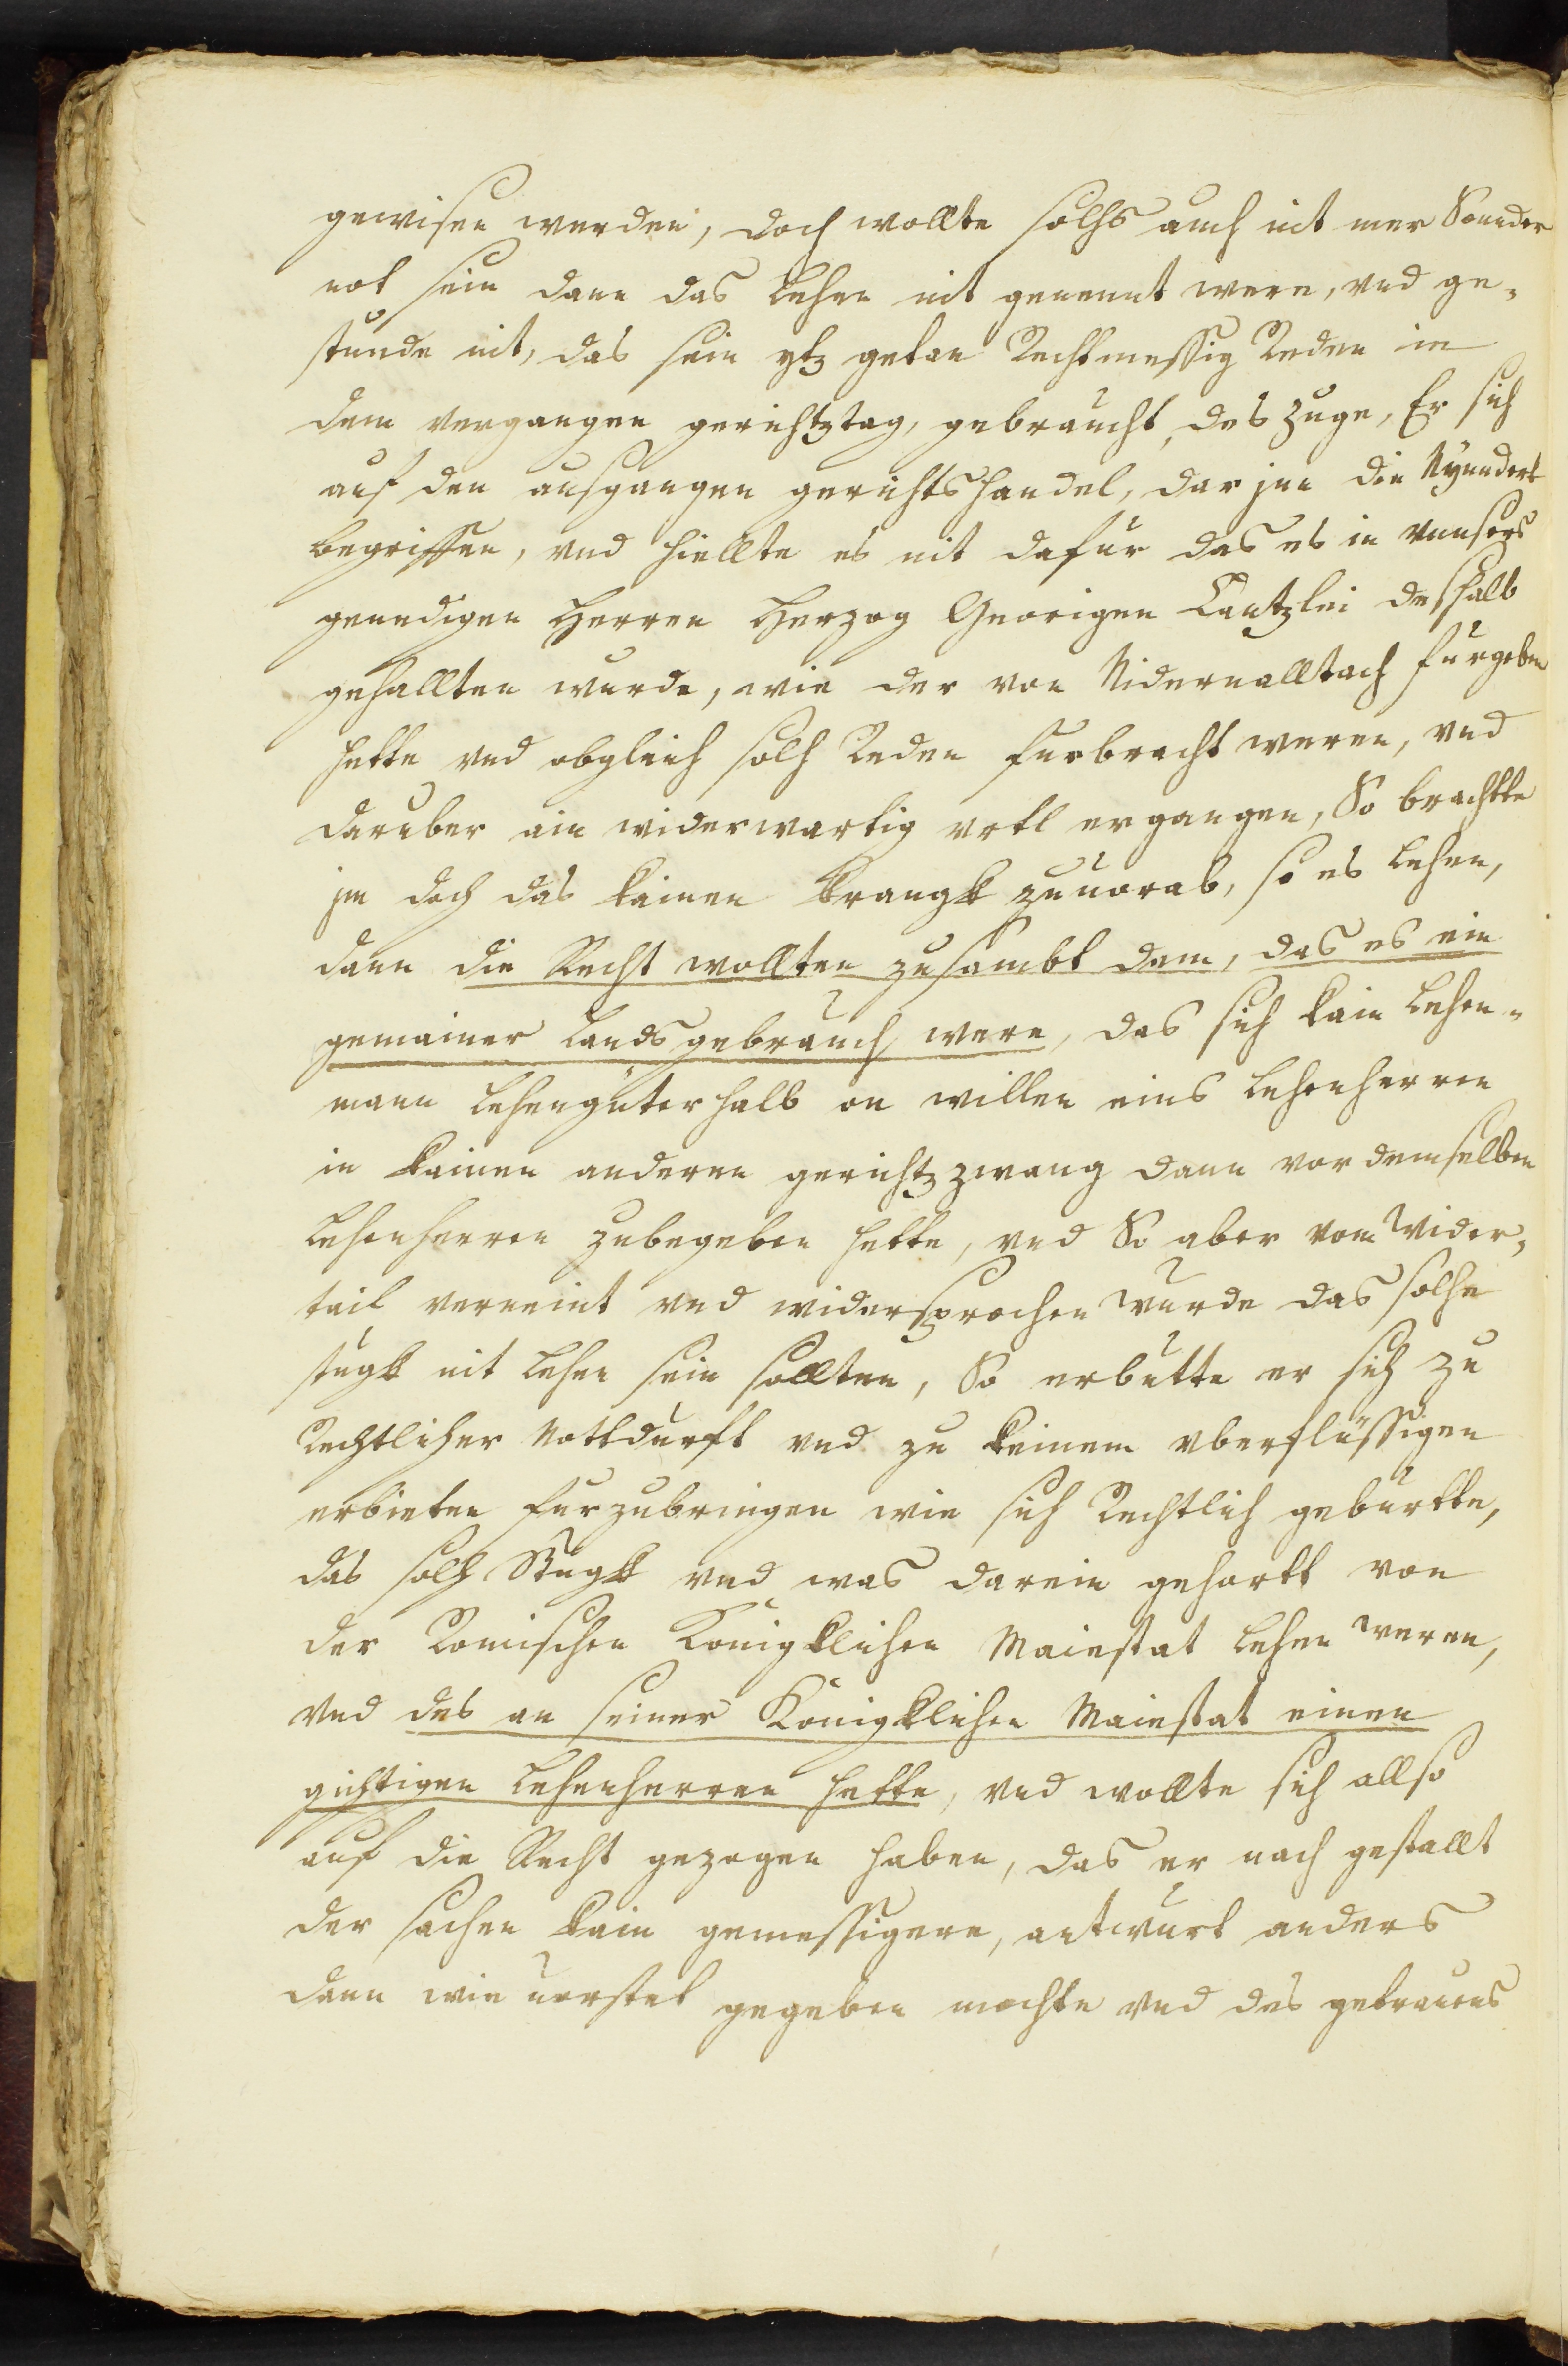 gewisen werden, doch wollte solhs auch nit mer Sonnder
not sein dann das Lehen nit genennt were, vnd ge¬
stunde nit, das sein ytz getan Rechtmessig Reden in
dem vergangen gerichtztag, gebraucht, des zuge, Er sich
auf den ausgangen gerichtshandel, dar jnn die
begriffen, vnd hiellte es nit dafur das es in vnnsers
genedigen Herren Herzog Georigen Cantzlei deshalb
gehallten wurde, wie der von Nidernalltach furgeben
hette vnd obgleich solh Reden furbracht weren, vnd
daruber ain widerwartig vrtl ergangen, So brachtte
jm doch das kainen krangk zuuorab, so es Lehen,
dann die Recht wollten zusambt dem, das es ein
gemainer Landsgebrauch were, das sich kain Lehen¬
mann Lehengüter halb on willen eins Lehenherren
in kainen anderen gerichtzzwang dann vor demselben
Lehenherren zubegeben hette, vnd So aber vom Wider¬
tail verneint vnd widersprochen wurde das solhe
stugk nit Lehen sein sollten, So erbutte er sich zu
Rechtlicher Nottdurft vnd zu keinem vberflüssigen
erbieten furzubringen wie sich Rechtlich geburtte,
das solh Stugk vnd was darein gehortt von
der Romischen Königklichen Maiestat Lehen weren,
Vnd des an seiner Königklichen Maiestat einen
gichtigen Lehenherren hette, vnd wollte sich allso
auf die Recht gezogen haben, das er nach gestallt
der sachen kain gemessigere, antwurt anders
dann wie uorstet gegeben mochte vnd des getrauens